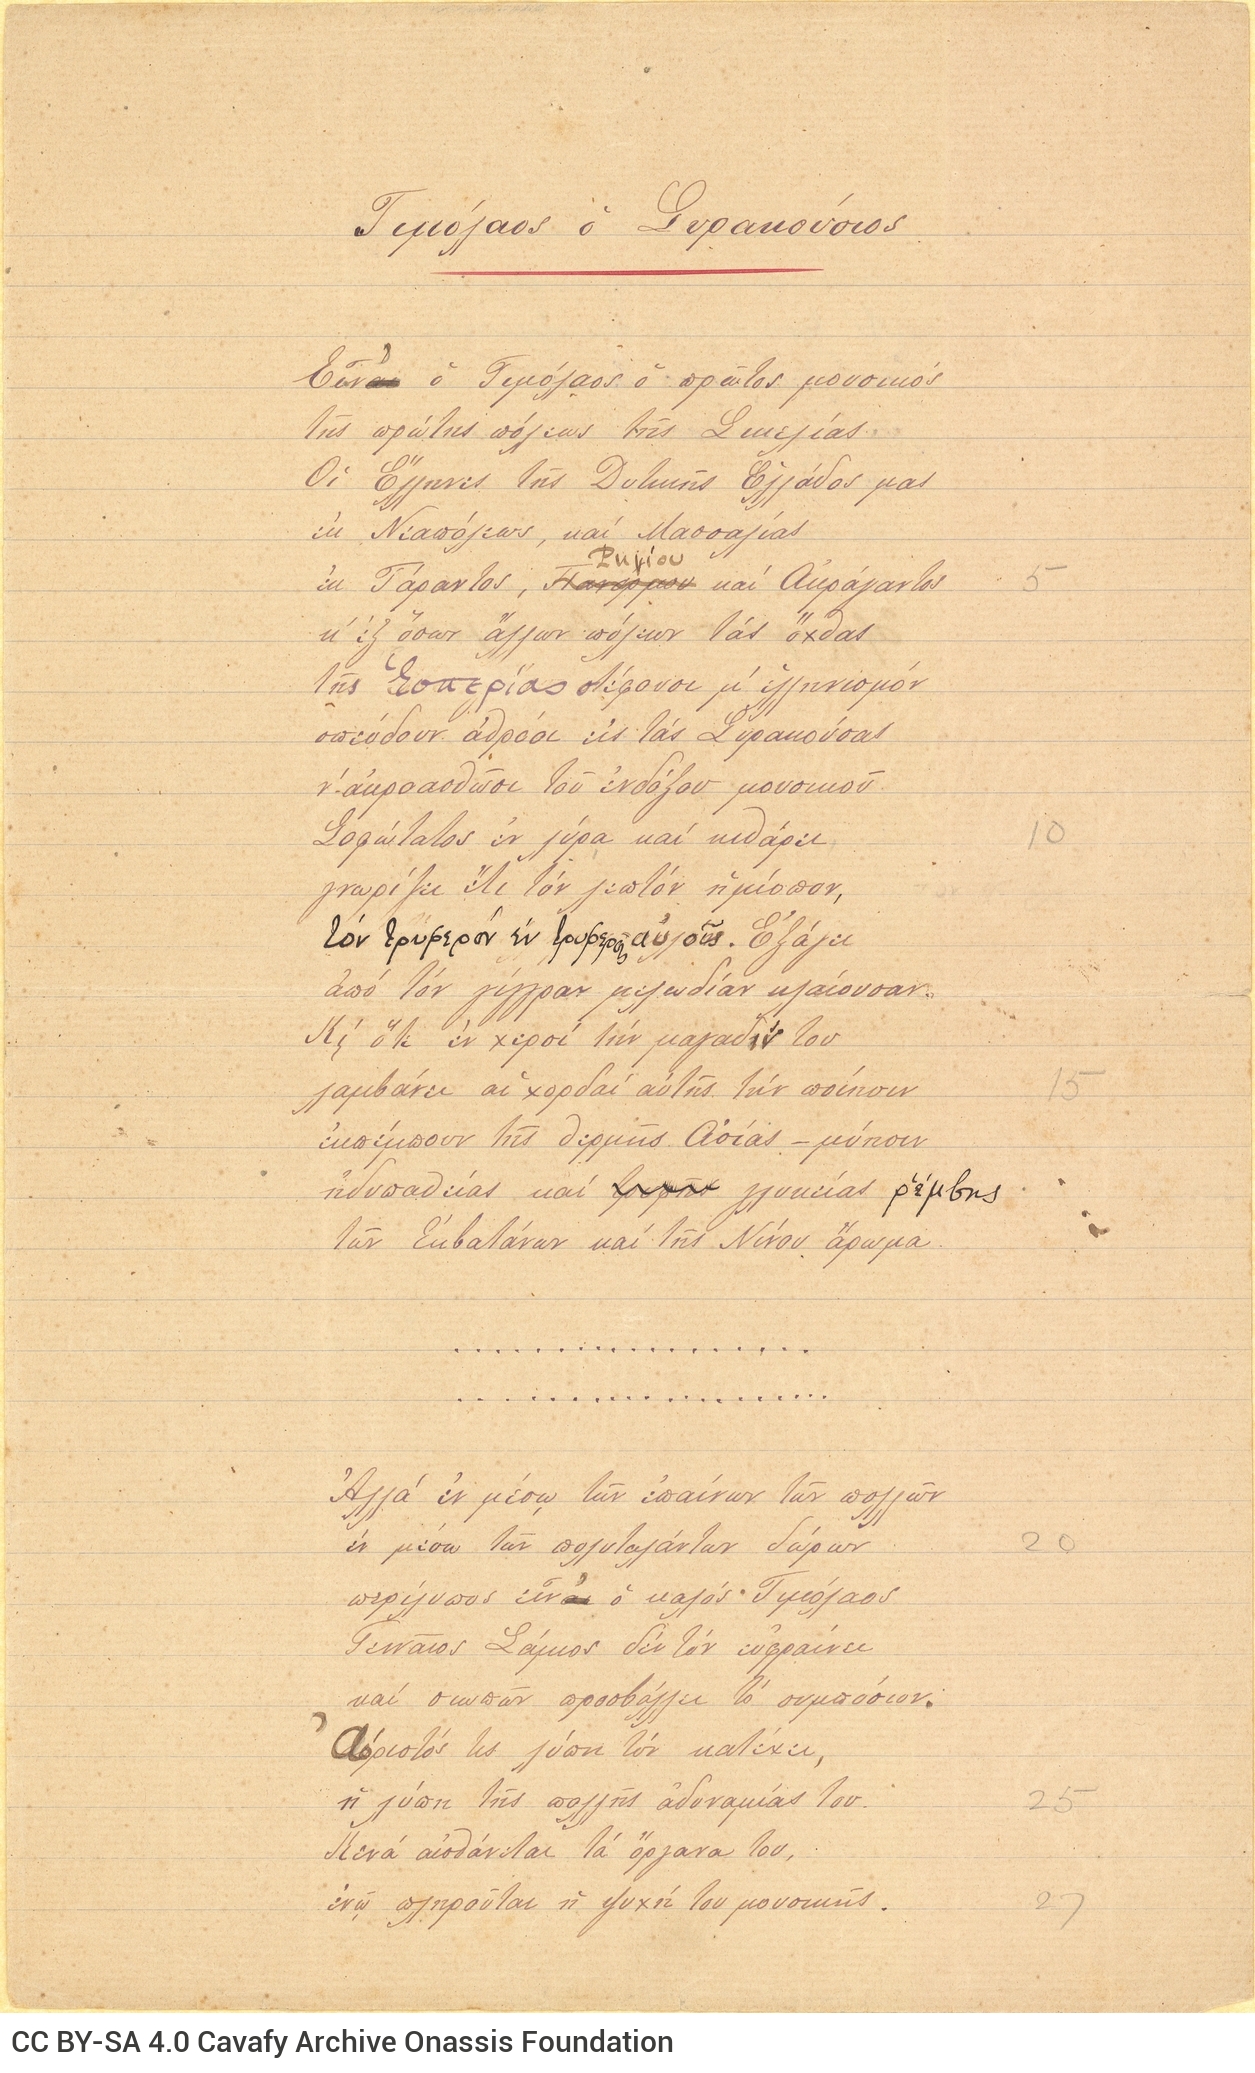 Τιμόλαος ὁ Συρακούσιος
Εἶν' ὁ Τιμόλαος ὁ πρῶτος μουσικός
τῆς πρώτης πόλεως τῆς Σικελίας.
Οἱ Ἕλληνες τῆς Δυτικῆς Ἑλλάδος μας
ἐκ Νεαπόλεως, καί Μασσαλίας
Ρηγίου
ἐκ Τάραντος, Πανόρμου καί Ἀκράγαντος 5
κ' ἐξ ὅσων ἄλλων πόλεων τάς ὄχθας
τῆς Ἑσπερίας στέφουσι μ' ἑλληνισμόν
σπεύδουν ἀθρόοι εἰς τάς Συρακούσας
ν' ἀκροασθῶσι τοῦ ἐνδόξου μουσικοῦ.
Σοφώτατος ἐν λύρᾳ καί κιθάρᾳ 10
γνωρίζει ἔτι τόν λεπτόν ἡμίοπον,
τόν τρυφερόν ἐν τρυφεροῖς αὐλοῖς. Ἐξάγει
ἀπό τόν γίγγραν μελωδίαν κλαίουσαν.
Κι ὅτε ἐν χερσί τήν μαγαδίν του
λαμβάνει αἱ χορδαί αὐτῆς τήν ποίησιν 15
ἐκπέμπουν τῆς θερμῆς Ἀσίας – μύησιν
ἡδυπαθείας καί γλυκείας ῥέμβης
τῶν Ἐκβατάνων καί τῆς Νίνου ἄρωμα.
. . . . . . . . . . . . . . . .
. . . . . . . . . . . . . . . .
Ἀλλά ἐν μέσῳ τῶν ἐπαίνων τῶν πολλῶν
ἐν μέσῳ τῶν πολυταλάντων δώρων 20
περίλυπος εἶν' ὁ καλός Τιμόλαος
Γενναῖος Σάμιος δέν τόν εὐφραίνει
καί σιωπῶν προσβάλλει τό συμπόσιον.
Ἀόριστός τις λύπη τόν κατέχει,
ἡ λύπη τῆς πολλῆς ἀδυναμίας του. 25
Κενά αἰσθάνεται τά ὄργανα του,
ἐνῷ πληροῦται ἡ ψυχή του μουσικῆς. 27
CC BY-SA 4.0 Cavafy Archive Onassis Foundation